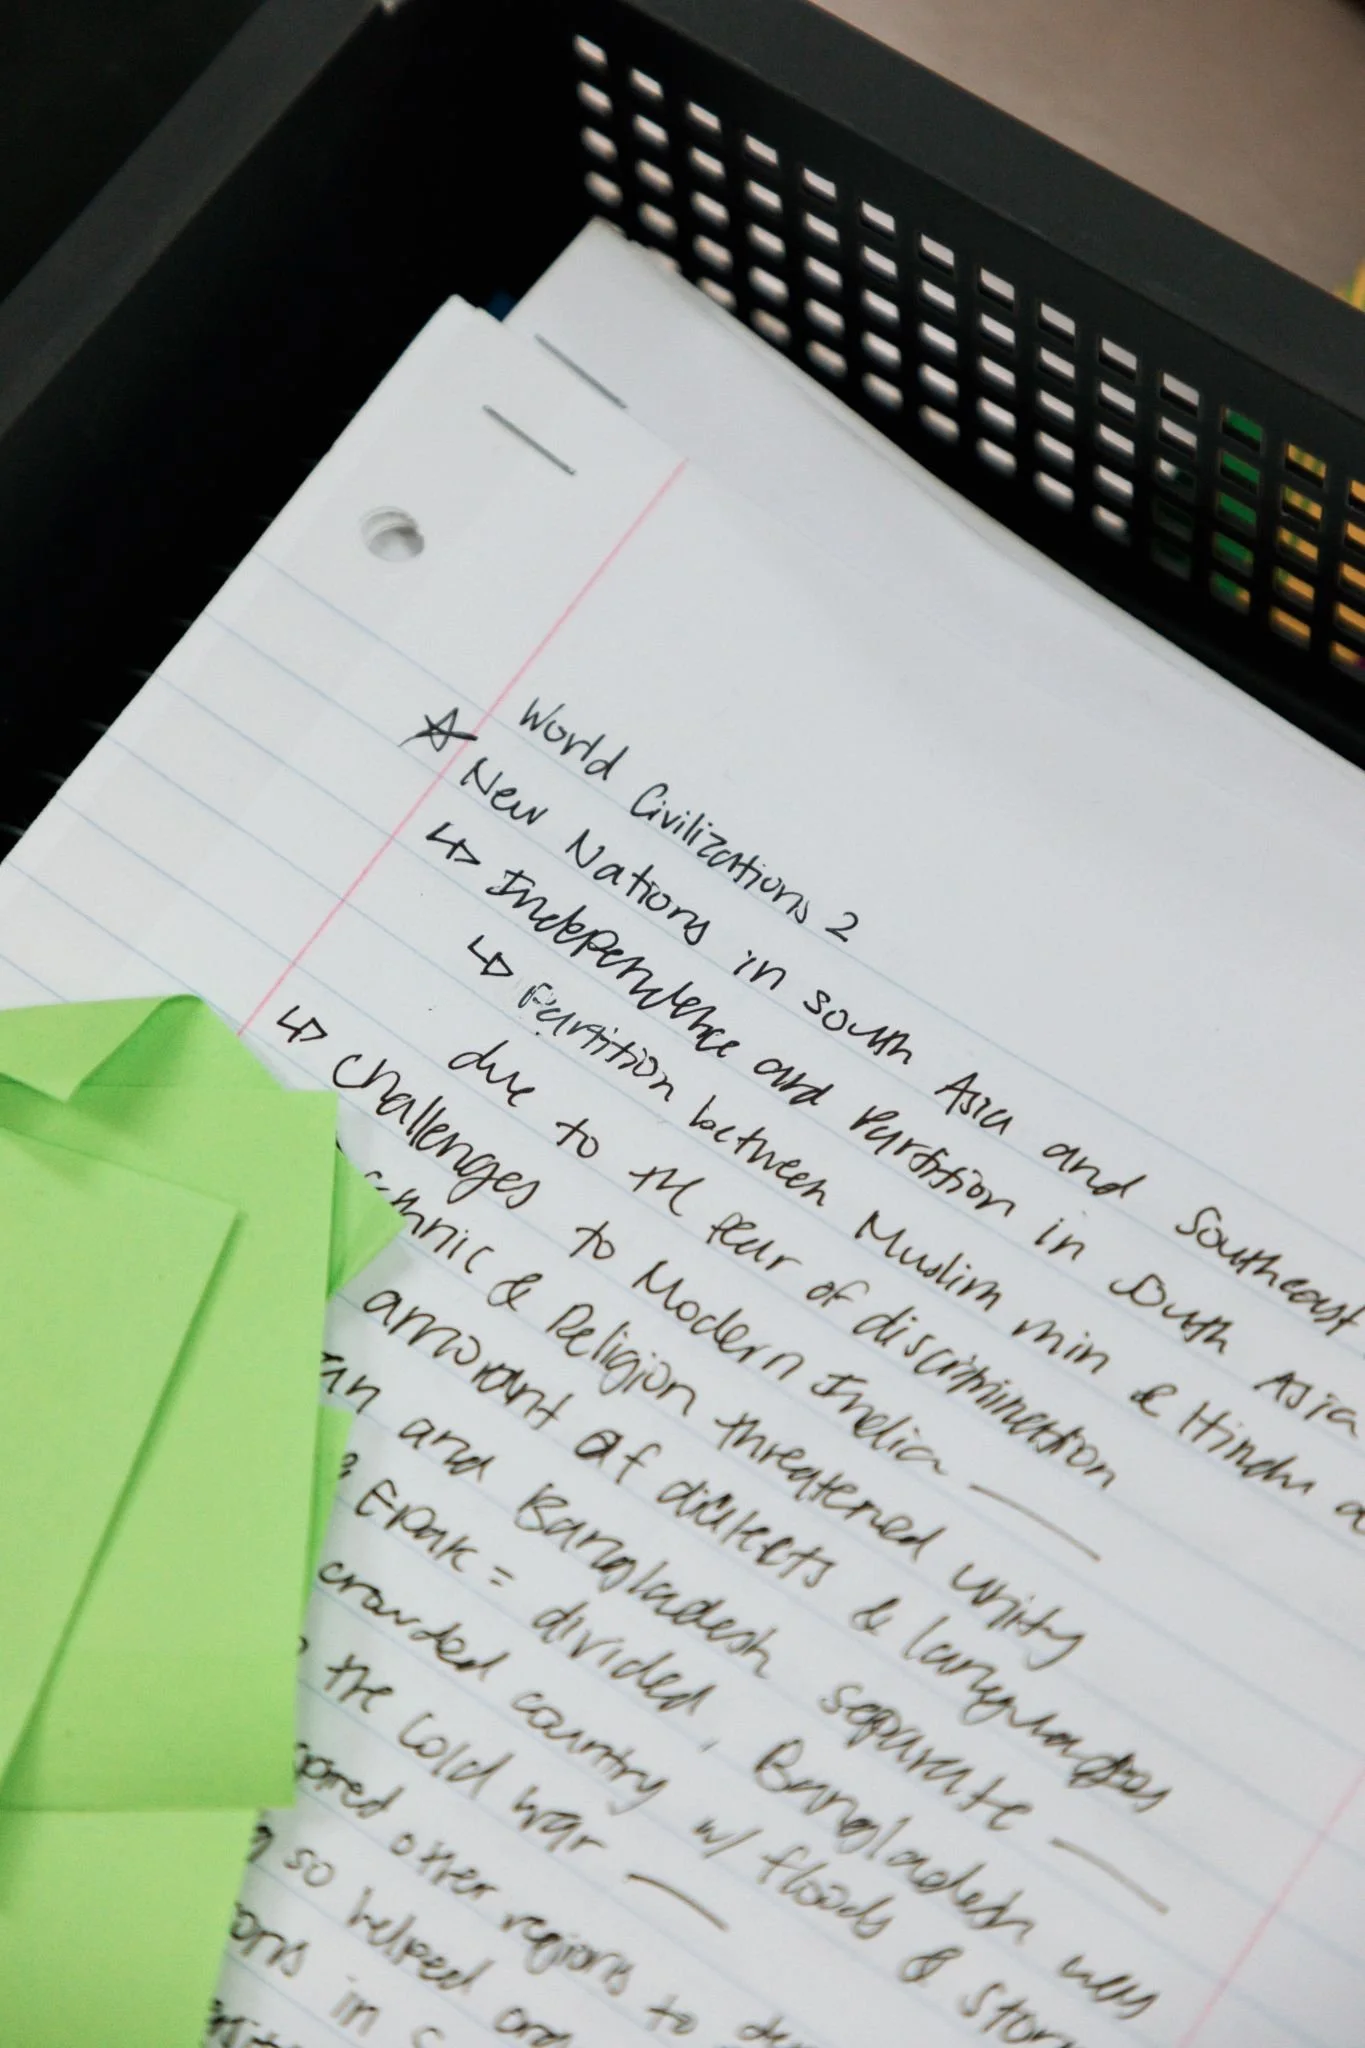 World Civilizations 2
New Nations in south Asia and Southeast
↳ Independence and Partition in South Asia
↳ Partition between Muslim min & Hindu
due to the fear of discrimination
↳ Challenges to Modern India —
& Religion threatened unity
amount of dialects & languages
and Bangladesh separate —
EPak = divided, Bangladesh was
crowded country w/ floods &
the Cold War —
other regions to
so helped
in